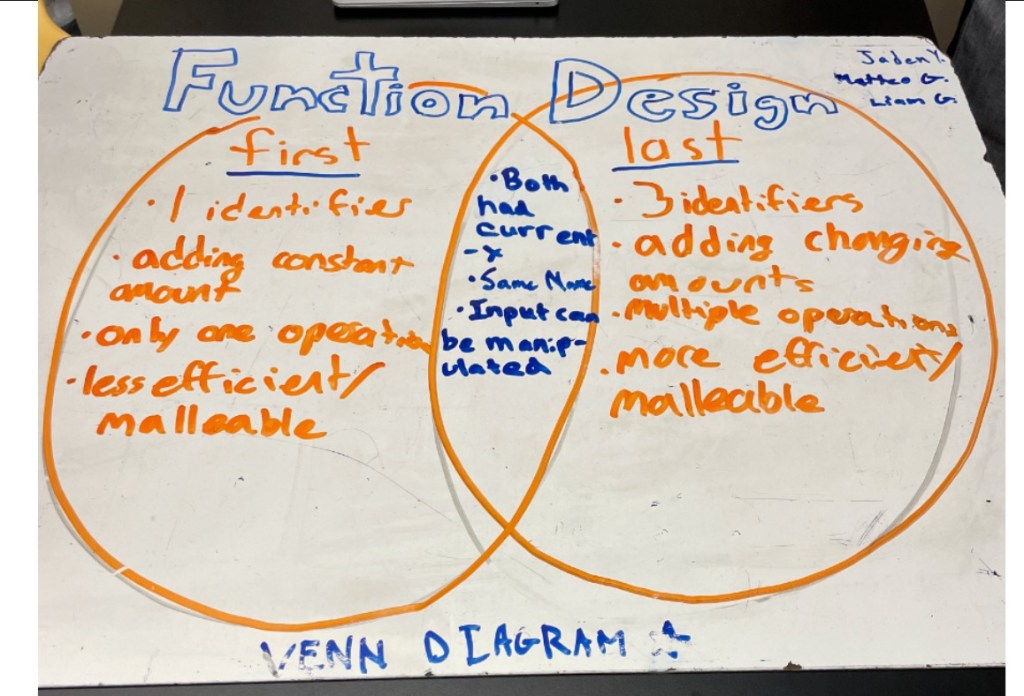 Function Design
Jaden Y.
Matteo G.
Liam G.
first
· 1 identifier
· adding constant
amount
· only one operation
· less efficient/
malleable
· Both
had
current
-x
· Same Name
· Input can
be manip-
ulated
last
· 3 identifiers
· adding changing
amounts
· multiple operations
· more efficient/
malleable
VENN DIAGRAM